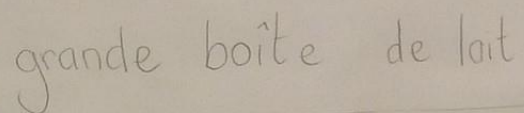 grande boîte de lait